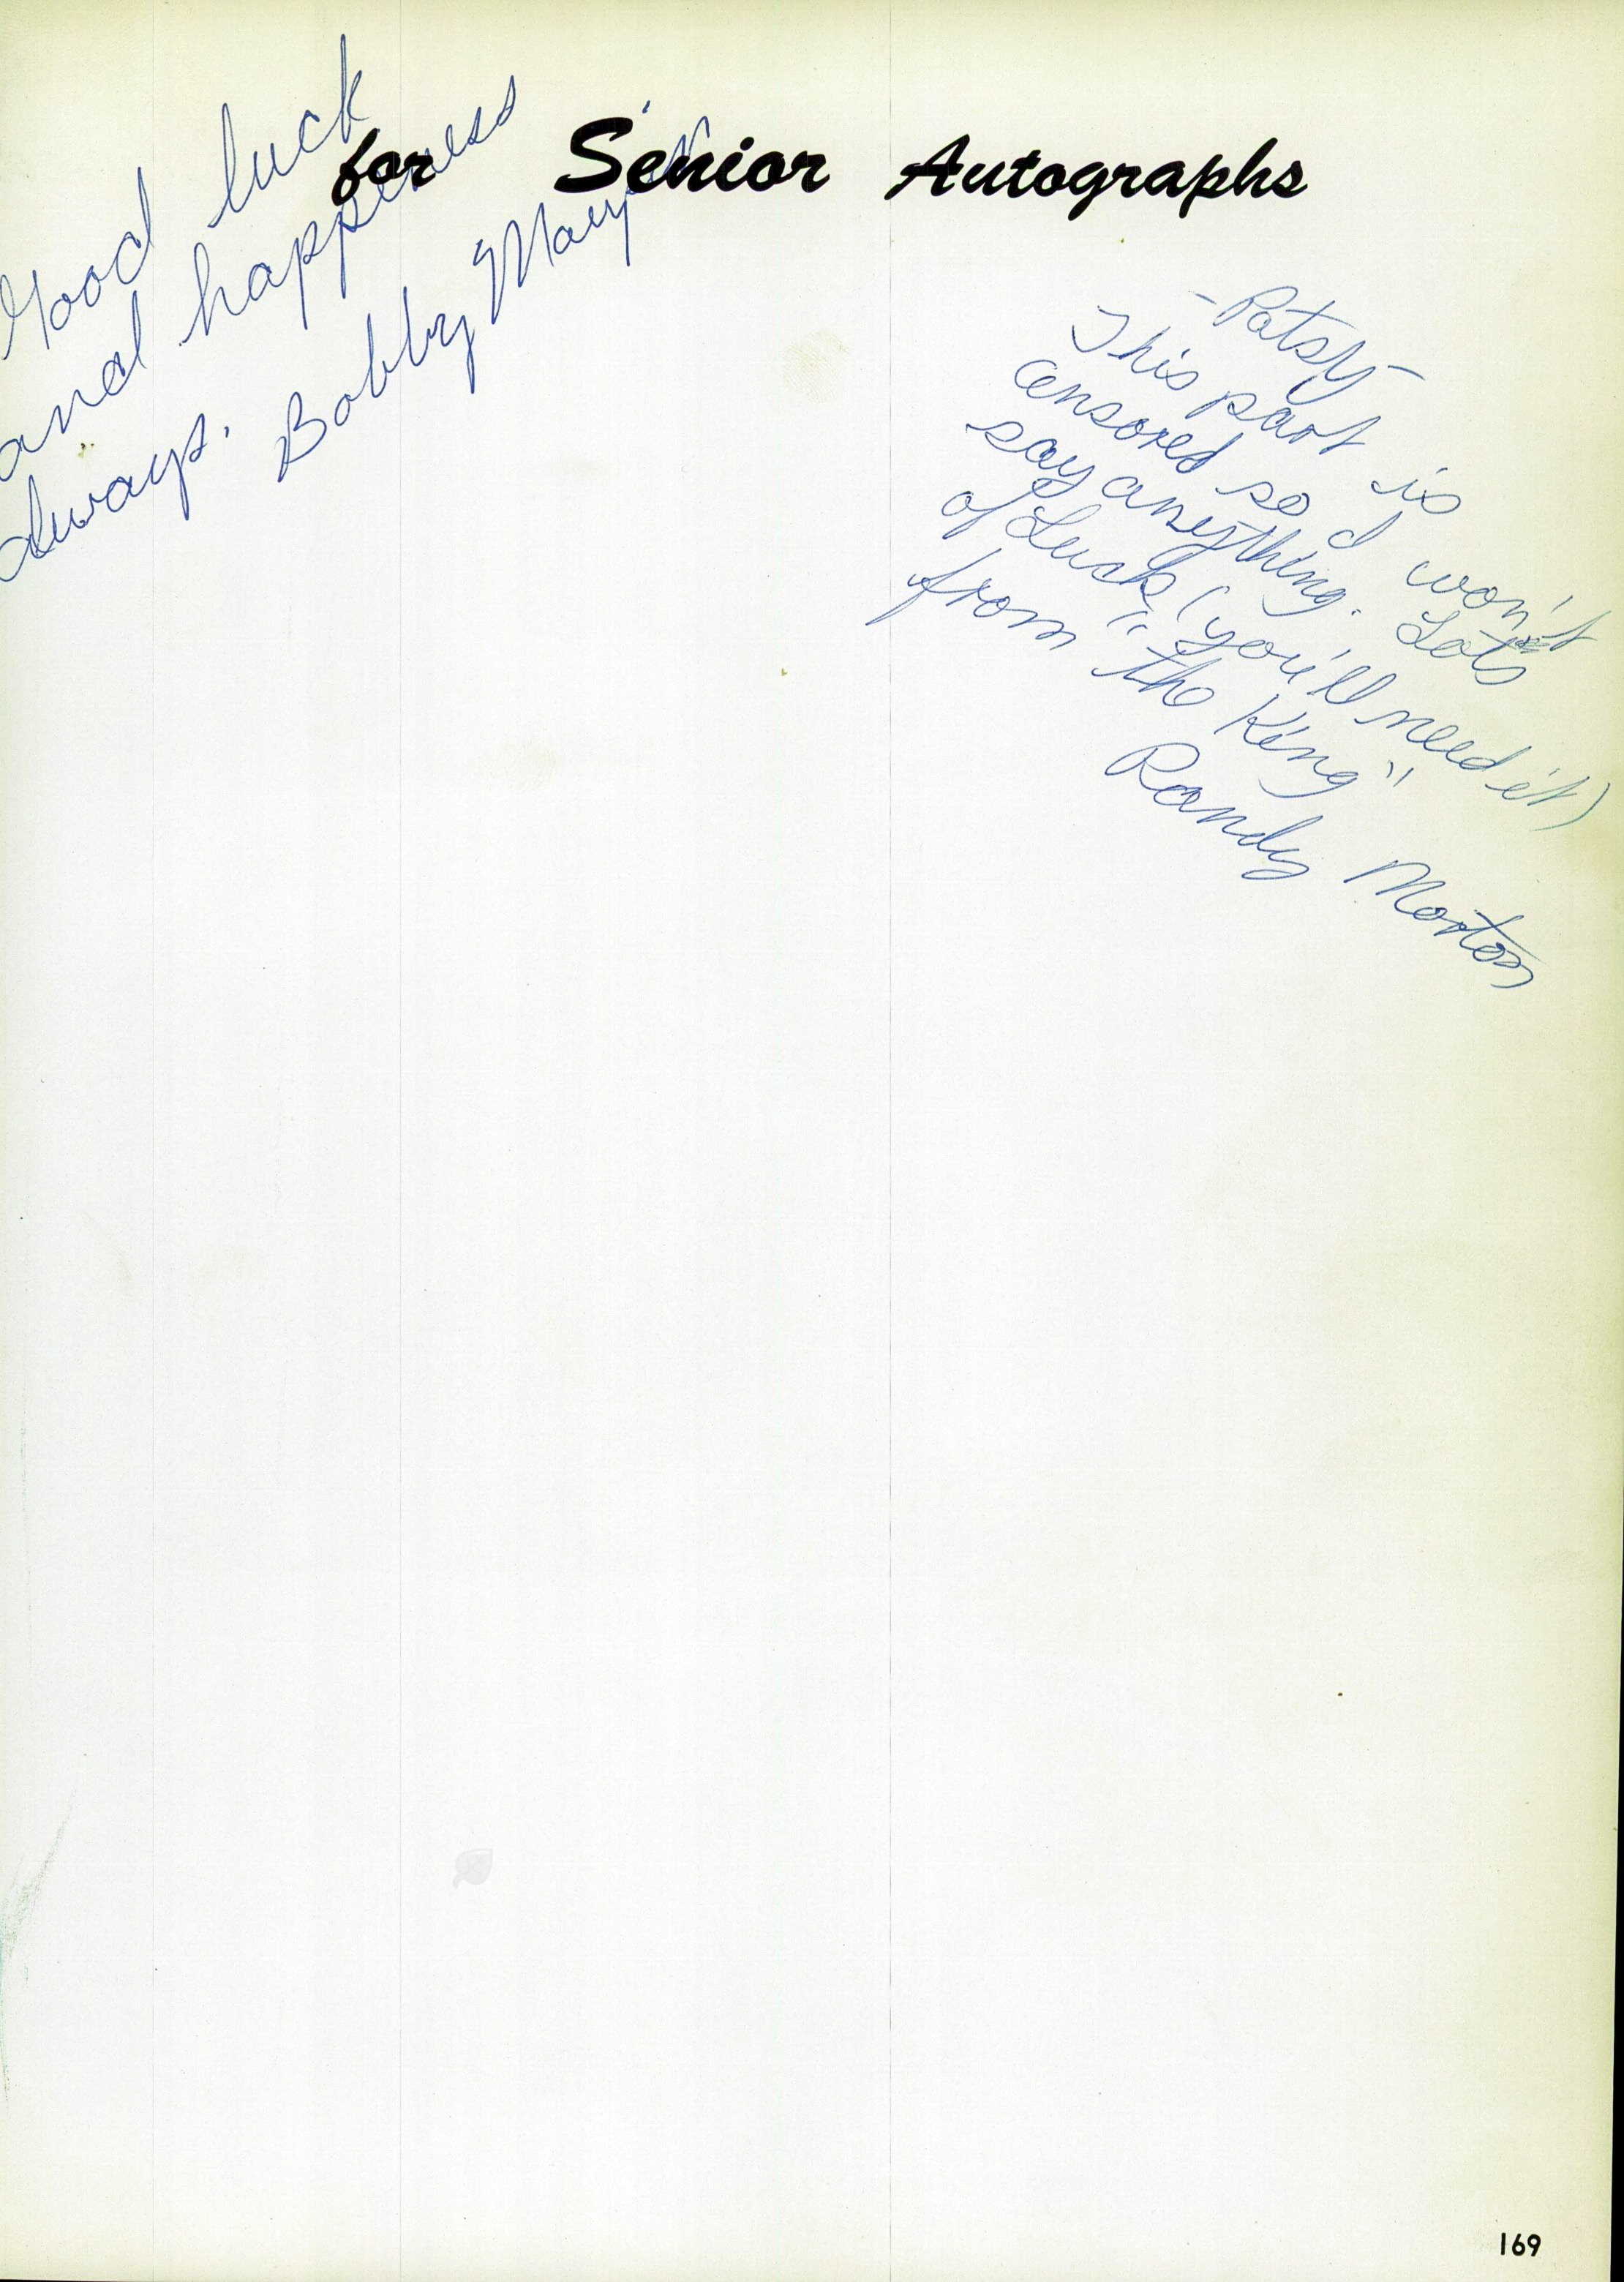 for Senior Autographs
Good luck
and happiness
always.
Bobby
-Patsy-
This part is
censored so I won't
say anything. Lots
of Luck (you'll need it)
from "the King"
Randy Morton
169